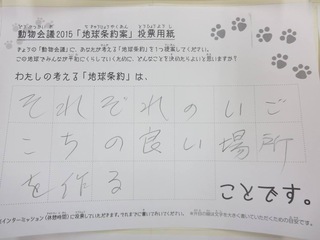 動物会議2015「地球条約案」投票用紙
きょうの「動物会議」に、あなたが考える「地球条約」を1つ提案してください。
この地球でみんなが平和にくらしていくために、どんなことを決めたらよいと思いますか?
わたしの考える「地球条約」は、
それぞれのいご
こちの良い場所
を作る
ことです。
(インターミッション(休憩時間)に投票していただきます。